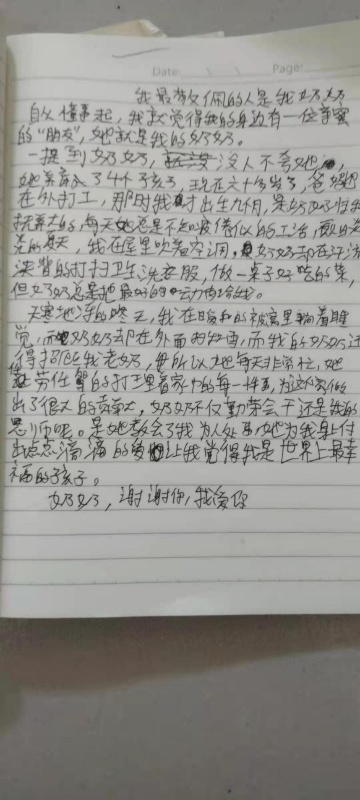 Date: Page:
我最敬佩的人是我奶奶
自从懂事起，我就觉得我的身边有一位亲密
的“朋友”，她就是我的奶奶。
一提到奶奶，没人不夸她，
她养育了4个孩子，现在六十多岁了，爸妈
在外打工，那时我才出生九个月，是奶奶
抚养大的，每天她总是不知疲倦的工活，
的夏天，我在屋里吹着空调，奶奶却在汗流
浃背的打扫卫生洗衣服，做一桌子好吃的菜，
但奶奶总是把最好的给我。
天寒地冻的冬天，我在暖和的被窝里躺着睡
觉，而奶奶却在外面，而我的奶奶还
得招呼我老奶，所以她每天非常忙，她
任劳任的打理着家中的每一件事，为这个家做
出了很大的贡献，奶奶不仅勤劳会干还是我的
恩师呢。是她教会了我为人处事她为我身上付
出点点滴滴的爱让我觉得我是世界上最幸
福的孩子。
奶奶，谢谢你，我爱你